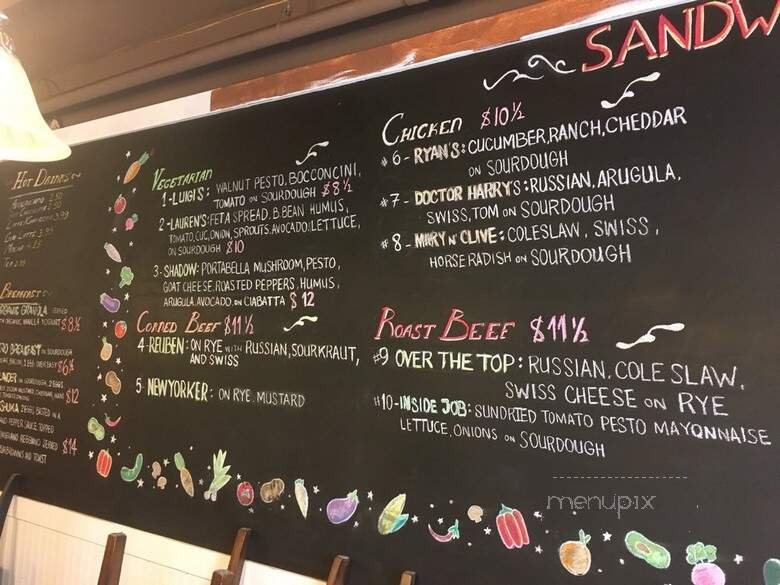 SANDW
HOT DRINKS
BREAKFAST
VEGETARIAN
1-LUIGI'S: WALNUT PESTO, BOCCONCINI,
TOMATO ON SOURDOUGH $8½
2-LAUREN'S: FETA SPREAD, B.BEAN HUMUS,
TOMATO, CUC, ONION, SPROUTS, AVOCADO, LETTUCE,
ON SOURDOUGH $10
3-SHADOW: PORTABELLA MUSHROOM, PESTO,
GOAT CHEESE, ROASTED PEPPERS, HUMUS,
ARUGULA, AVOCADO, ON CIABATTA $12
CORNED BEEF $11½
4-REUBEN: ON RYE WITH RUSSIAN, SOURKRAUT,
AND SWISS
5-NEWYORKER: ON RYE, MUSTARD
CHICKEN $10½
#6-RYAN'S: CUCUMBER, RANCH, CHEDDAR
ON SOURDOUGH
#7-DOCTOR HARRY'S: RUSSIAN, ARUGULA,
SWISS, TOM ON SOURDOUGH
#8-MARY N' CLIVE: COLESLAW, SWISS,
HORSERADISH ON SOURDOUGH
ROAST BEEF $11½
#9 OVER THE TOP: RUSSIAN, COLE SLAW,
SWISS CHEESE ON RYE
#10-INSIDE JOB: SUNDRIED TOMATO PESTO MAYONNAISE
LETTUCE, ONIONS ON SOURDOUGH
menupix